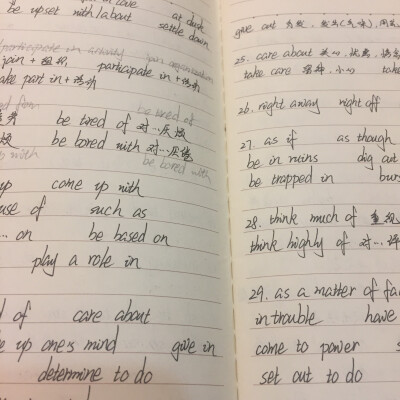 be upset with/about at dusk
settle down
participate in activity join organization
join + 组织 participate in + 活动
take part in + 活动
be tired of
be tired of 对…厌烦
be bored with 对…厌倦
with be bored with
up come up with
use of such as
… on be based on
play a role in
of care about
up one's mind give in
determine to do
give out
25. care about 关心
take care 小心
26. right away right off
27. as if as though
be in ruins dig out
be trapped in
28. think much of 重视
think highly of 对…评
29. as a matter of fa
in trouble have
come to power
set out to do